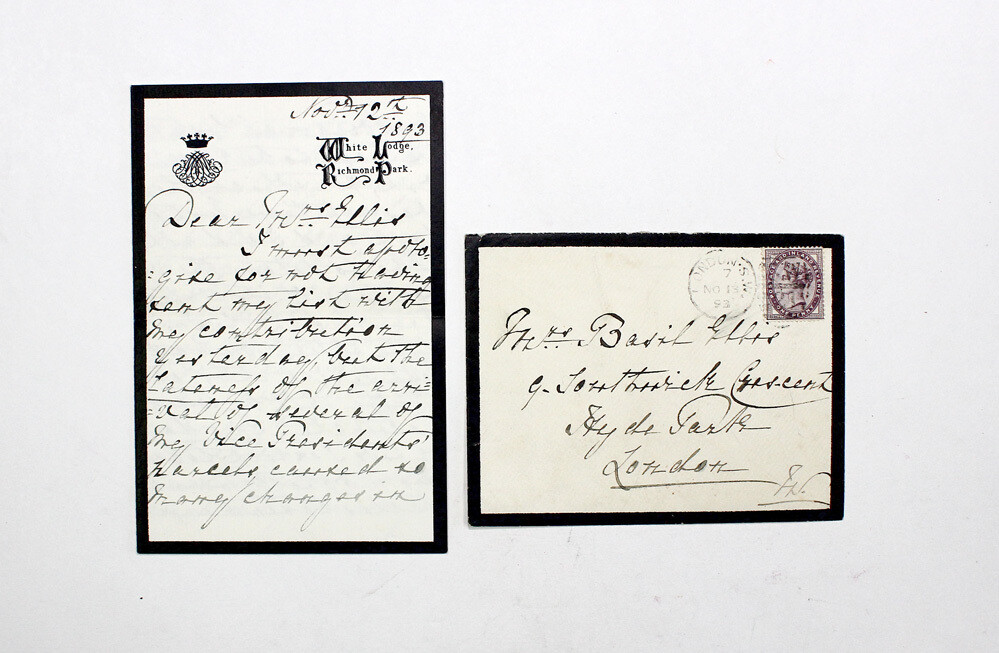 Novr 12th
1893
White Lodge,
Richmond Park.
Dear Mrs Ellis
I must apolo-
=gise for not having
sent my list with
my contribution
yesterday, but the
lateness of the arri=
=val of several of
my Vice Presidents'
parcels caused so
many changes in
LONDON. S.W.
7
NO 13
93
POSTAGE AND INLAND REVENUE
ONE PENNY
Mrs Basil Ellis
9. Southwick Crescent
Hyde Park
London